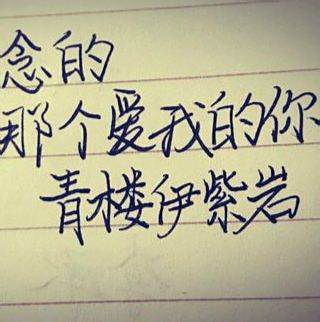 念的
那个爱我的你
青楼伊紫岩